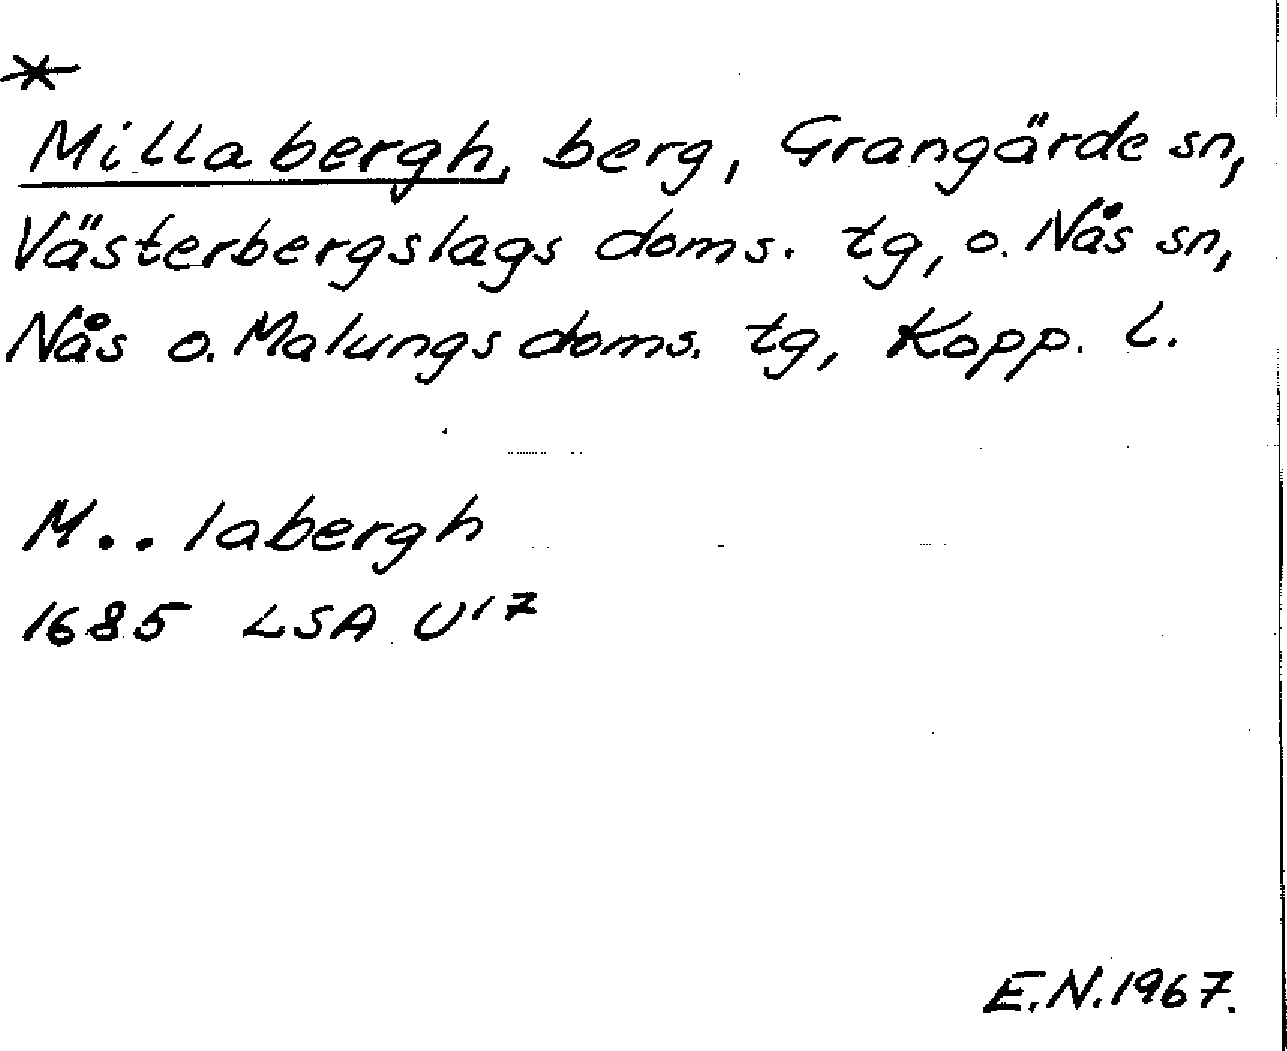 *
Millabergh, berg, Grangärde sn,
Västerbergslags doms. tg, o. Nås sn,
Nås o. Malungs doms. tg, Kopp. L.
M.. labergh
1685 LSA U17
E.N. 1967.